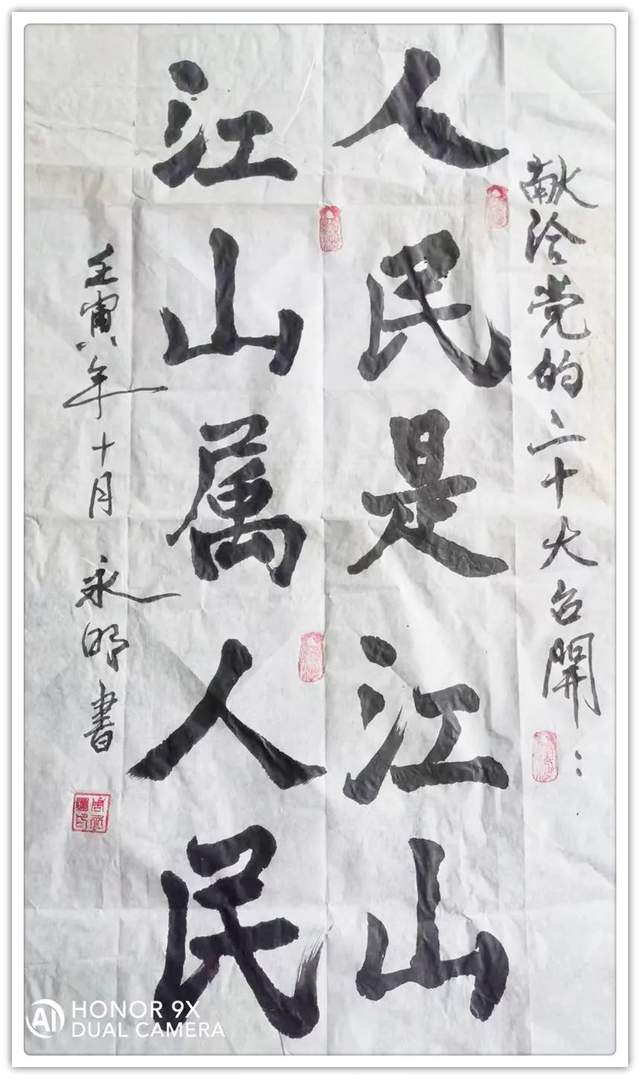 献给党的二十大召开：
人民是江山
江山属人民
壬寅年十月 永明書
HONOR 9X
DUAL CAMERA